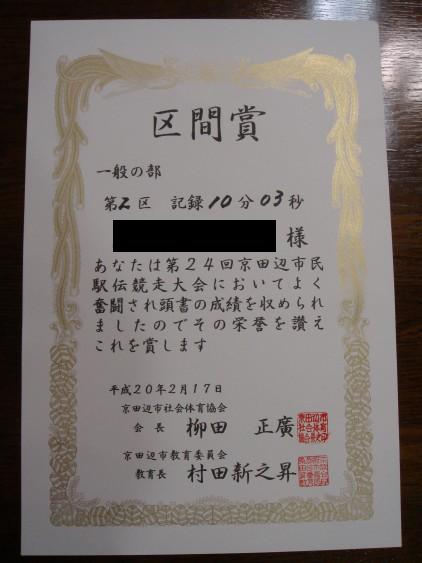 区間賞
一般の部
第2区 記録10分03秒
様
あなたは第24回京田辺市民
駅伝競走大会においてよく
奮闘され頭書の成績を収められ
ましたのでその栄誉を讃え
これを賞します
平成20年2月17日
京田辺市社会体育協会
会長 柳田 正廣
京田辺市教育委員会
教育長 村田新之昇